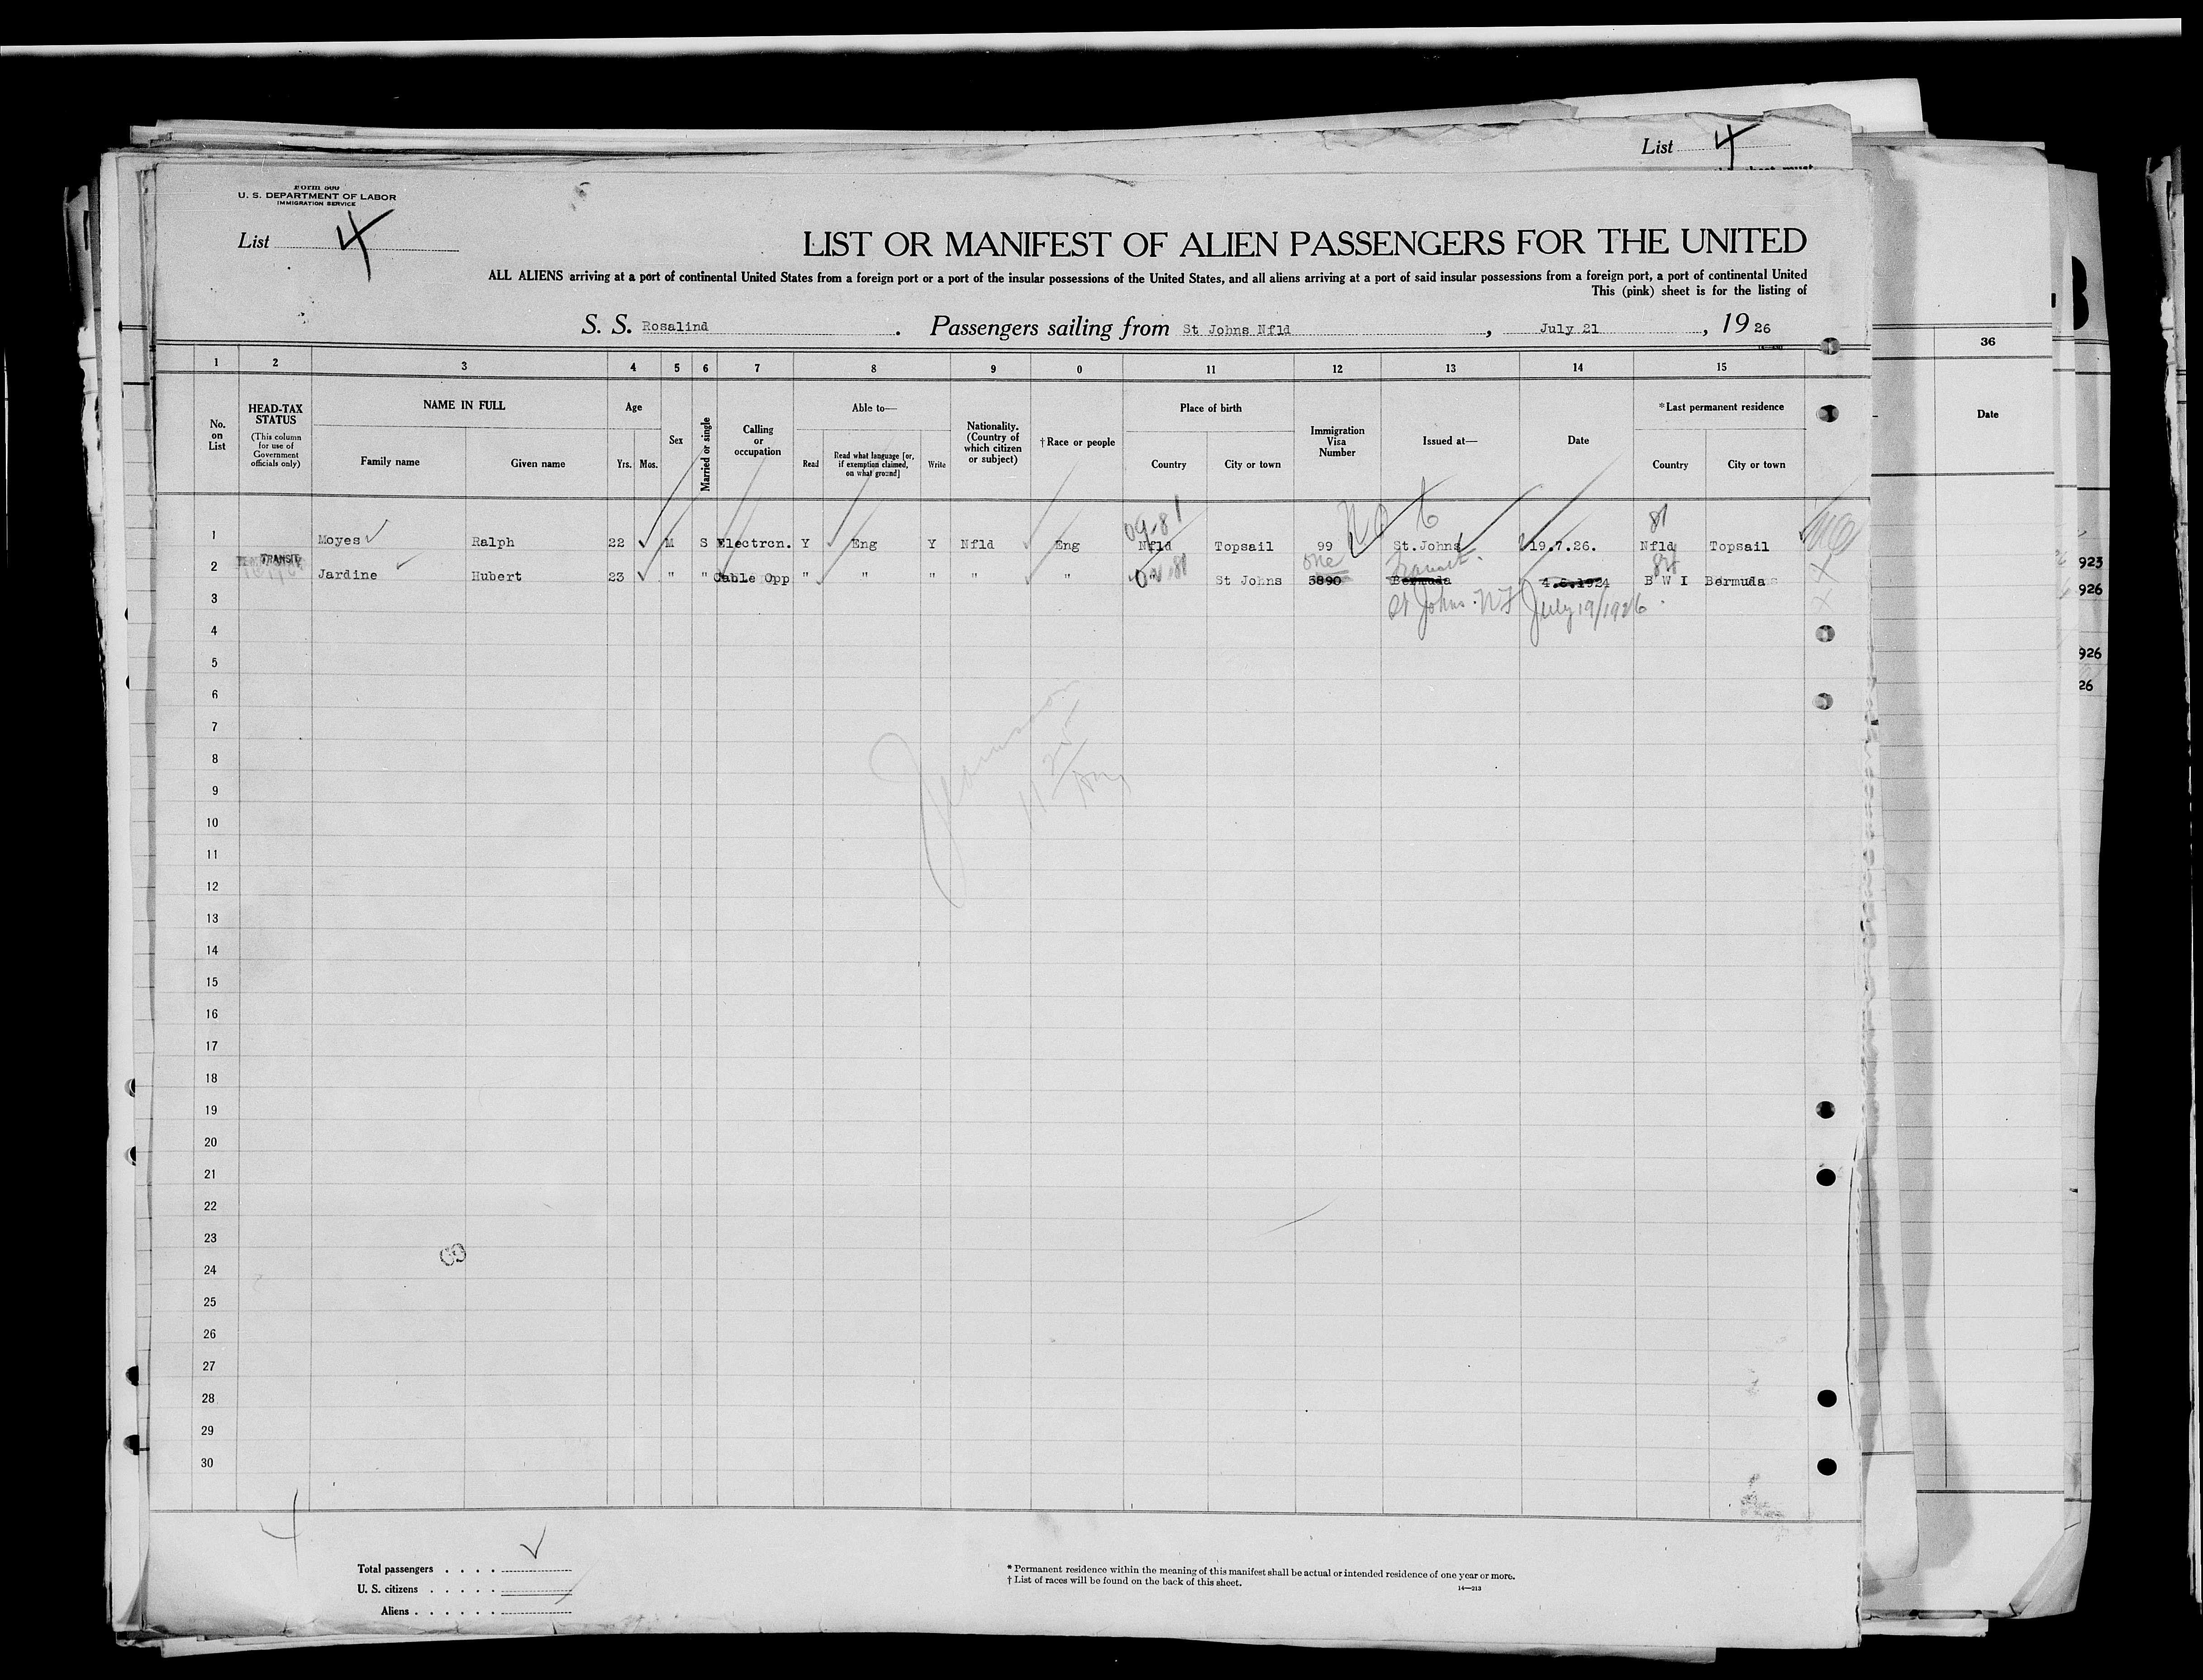 List 4
Form 500
U. S. DEPARTMENT OF LABOR
IMMIGRATION SERVICE
List 4
LIST OR MANIFEST OF ALIEN PASSENGERS FOR THE UNITED
ALL ALIENS arriving at a port of continental United States from a foreign port or a port of the insular possessions of the United States, and all aliens arriving at a port of said insular possessions from a foreign port, a port of continental United
This (pink) sheet is for the listing of
S. S. Rosalind. Passengers sailing from St Johns Nfld, July 21, 19 26
1 2 3 4 5 6 7 8 9 0 11 12 13 14 15 36
No. on List
HEAD-TAX STATUS
(This column for use of Government officials only)
NAME IN FULL
Family name Given name
Age
Yrs. Mos.
Sex
Married or single
Calling or occupation
Able to—
Read
Read what language [or, if exemption claimed, on what ground]
Write
Nationality. (Country of which citizen or subject)
† Race or people
Place of birth
Country City or town
Immigration Visa Number
Issued at—
Date
*Last permanent residence
Country City or town
Date
09-81 81
1 Moyes Ralph 22 M S Electrcn. Y Eng Y Nfld Eng Nfld Topsail 99 St.Johns 19.7.26. Nfld Topsail
TRANSIT one Transit
2 Jardine Hubert 23 " " Cable Opp " " " " " " St Johns 3890 Bermuda 4.6.1924 B W I Bermuda
St Johns. NF July 19/1926.
3
4
5
6
7
8
9
10
11
12
13
14
15
16
17
18
19
20
21
22
23
24
25
26
27
28
29
30
923
926
926
26
Total passengers . . . .
U. S. citizens . . . . .
Aliens . . . . . .
* Permanent residence within the meaning of this manifest shall be actual or intended residence of one year or more.
† List of races will be found on the back of this sheet.
14—213